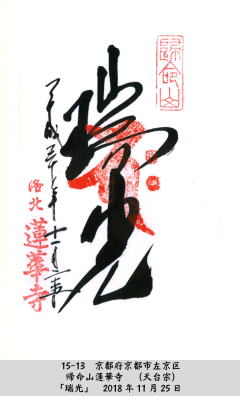 帰命山
瑞光
平成三十年十一月二十五日
洛北
蓮華寺
15-13　京都府京都市左京区
帰命山蓮華寺　（天台宗）
「瑞光」　2018年11月25日